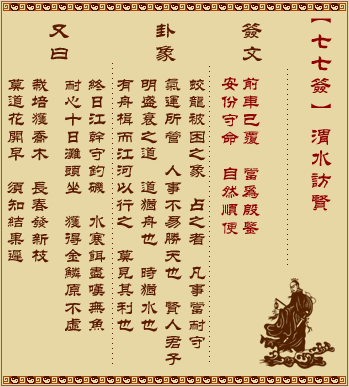 【七七簽】 渭水訪賢
簽文
前車已覆 當爲殷鑒
安份守命 自然順便
卦象
蛟龍被困之象 占之者 凡事當耐守
氣運所營 人事不易勝天也 賢人君子
明盛衰之道 道猶舟也 時猶水也
有舟楫而江河以行之 莫見其利也
又曰
終日江幹守釣磯 水寒餌盡嘆無魚
耐心十日灘頭坐 獲得金鱗原不虛
栽培獲喬木 長春發新枝
莫道花開早 須知結果遲